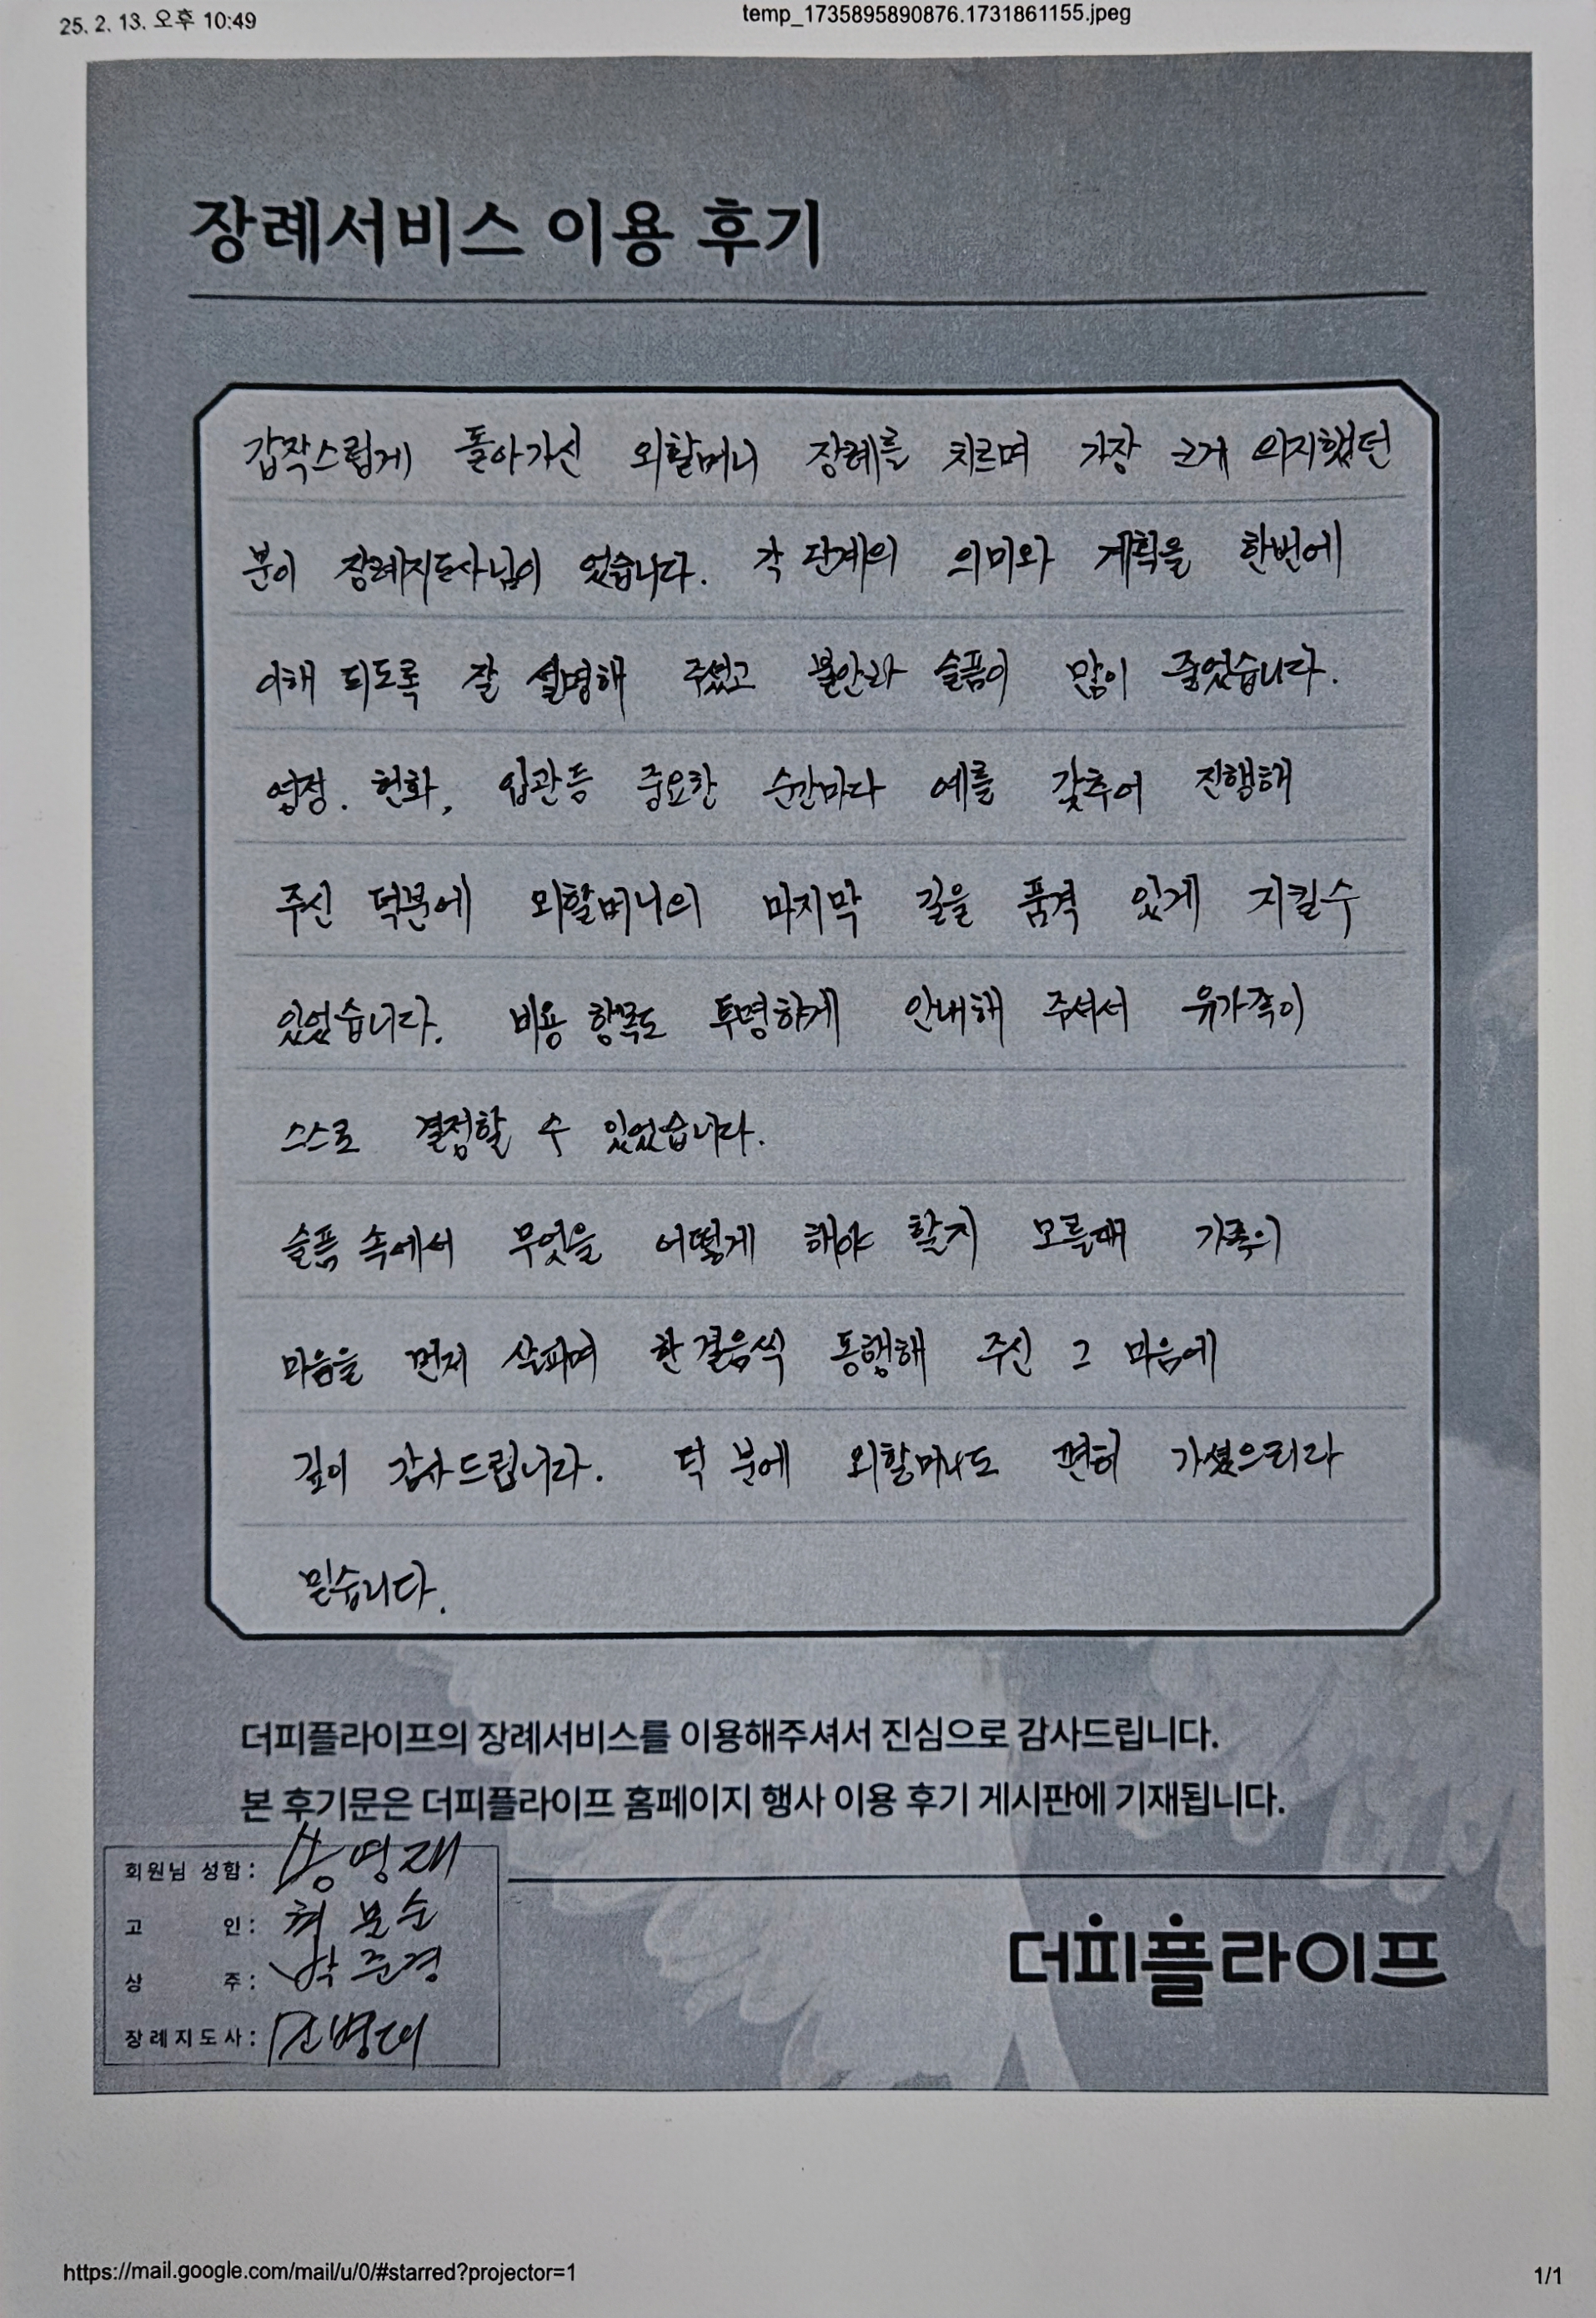 25. 2. 13. 오후 10:49
temp_1735895890876.1731861155.jpeg
장례서비스 이용 후기
갑작스럽게 돌아가신 외할머니 장례를 치르며 가장 크게 의지했던
분이 장례지도사님이 었습니다. 각 단계의 의미와 계획을 한번에
이해 되도록 잘 설명해 주셨고 불안과 슬픔이 많이 줄었습니다.
영정. 헌화, 입관등 중요한 순간마다 예를 갖추어 진행해
주신 덕분에 외할머니의 마지막 길을 품격 있게 지킬수
있었습니다. 비용 항목도 투명하게 안내해 주셔서 유가족이
스스로 결정할 수 있었습니다.
슬픔 속에서 무엇을 어떻게 해야 할지 모를때 가족의
마음을 먼저 살피며 한 걸음씩 동행해 주신 그 마음에
깊이 감사드립니다. 덕 분에 외할머니도 편히 가셨으리라
믿습니다.
더피플라이프의 장례서비스를 이용해주셔서 진심으로 감사드립니다.
본 후기문은 더피플라이프 홈페이지 행사 이용 후기 게시판에 기재됩니다.
회원님 성함: 송영재
고 인: 최분순
상 주: 박준경
장례지도사:
더피플라이프
https://mail.google.com/mail/u/0/#starred?projector=1
1/1